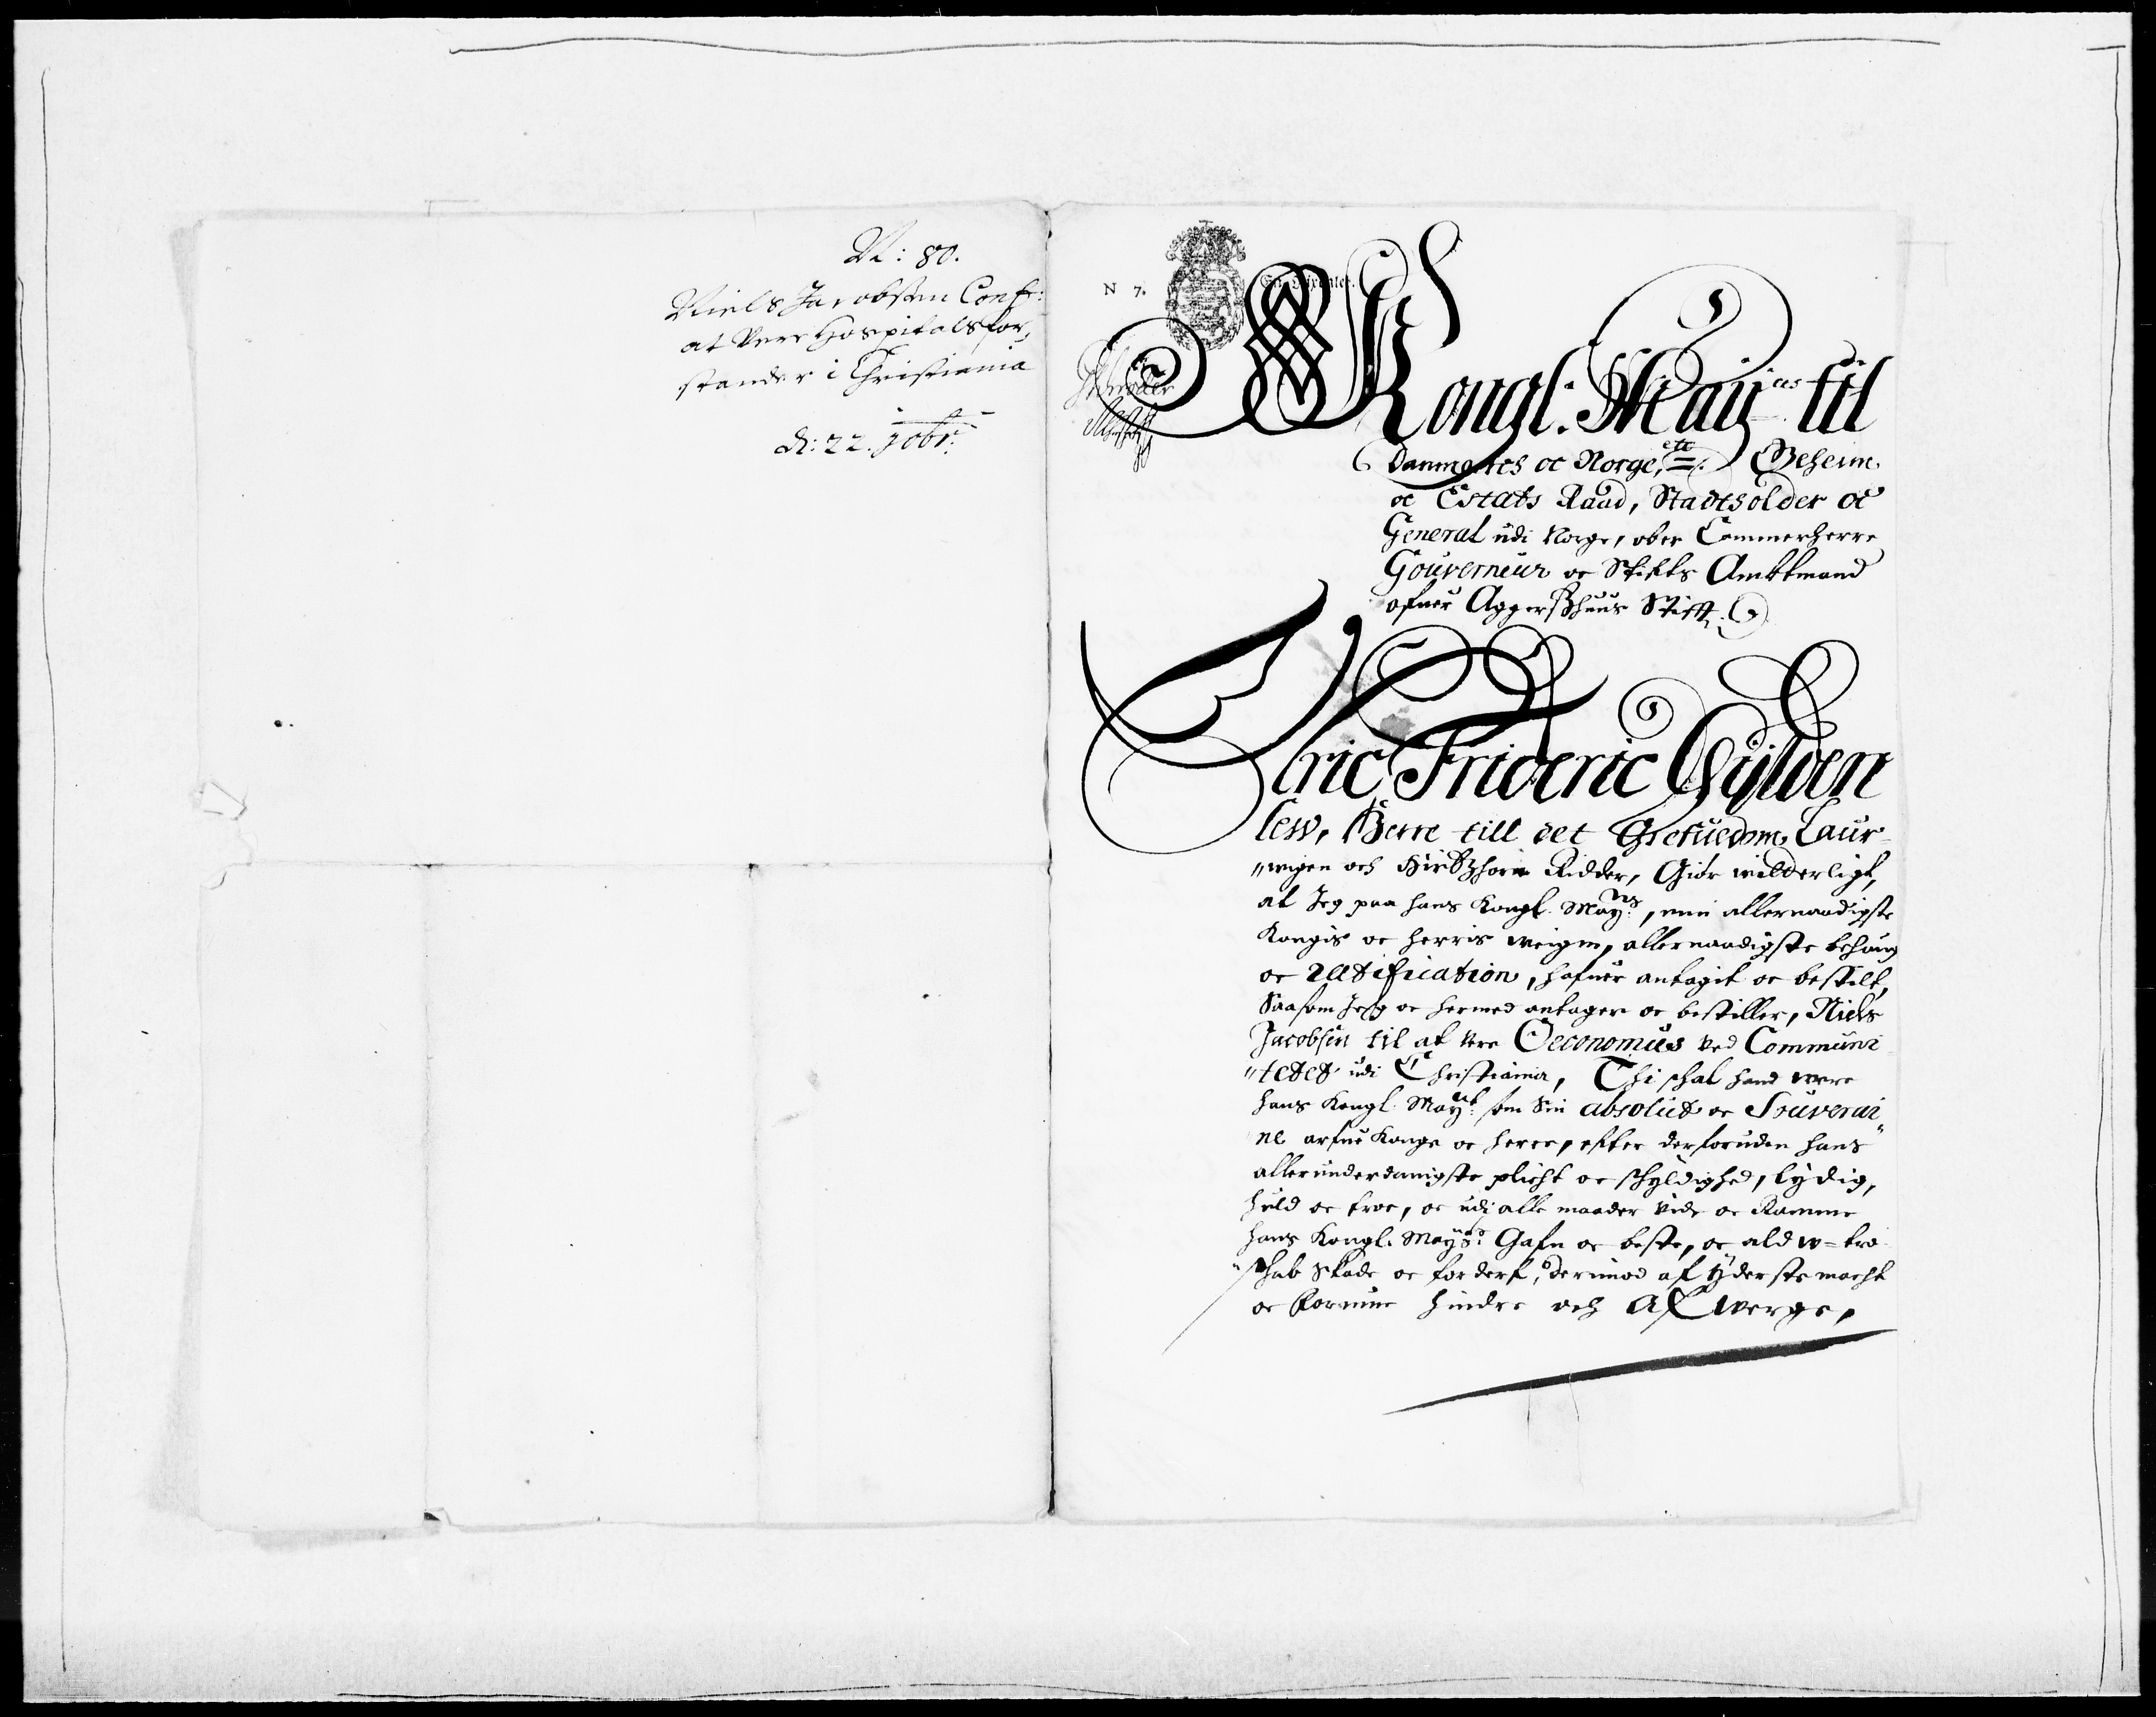 N: 80.
Niels Jacobsen Conf:
at Vere Hospitals for,
stander i Christiania
d: 22. 9obr:
N 7.
Kongl: Mayts til
Danmarks oc Norge, etc. Geheim.
oc Estats Raad, Stadtholder oc
General udi Norge, ober Cammerherre
Gouverneur oc Stifts Ambtmand
ofuer Aggershuus Stifft.
Ulric Frideric Gylden
lew, Herre till det Grefuedom, Laur
"wigen och Hirtzholm Ridder, Giør witterligt,
at Jeg paa hans Kongl. Mayts, min allernaadigste
Kongis oc herris weigne, allernaadigste behaug
oc Ratification, hafuer antagit oc bestilt,
Saasom Jeg oc hermed antager oc bestiller, Niels
Jacobsen til at vere Oeconomus ved Communi
"tetet udi Christiania, Thi schal hand were
hans Kongl. Mayt: som Sin absolut oc Souverai"
ne arfue Konge oc herre, efter derforuden hans
allerunderdanigste plicht oc schyldighed, lydig,
huld oc troe, oc udj alle maader Vide oc Ramme
hans Kongl. Mayts: Gafn oc beste, oc ald w=tro
"schab Skade oc forderf, derimod af yderste macht
oc formue hindre och Afwerge,